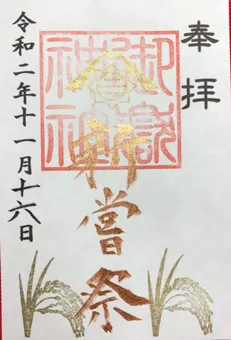 奉拝
御嶽神社
新嘗祭
令和二年十一月十六日